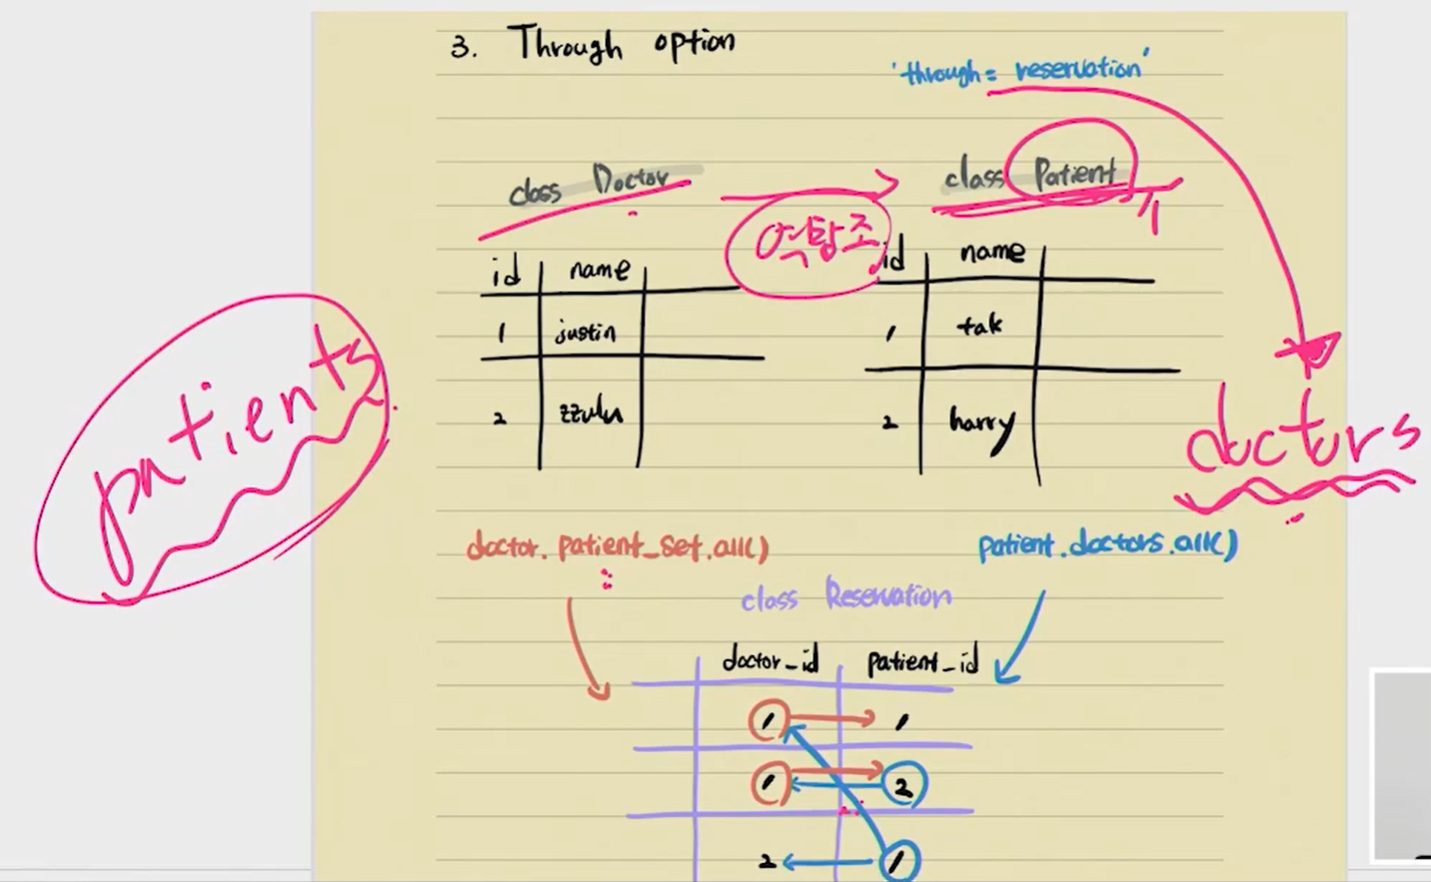 3. Through option
'through= reservation'
class Doctor
class Patient
역참조
id name
1 justin
2 zzulu
id name
1 tak
2 harry
patients
doctors
doctor.patient_set.all()
patient.doctors.all()
class Reservation
doctor_id patient_id
1 1
1 2
2 1